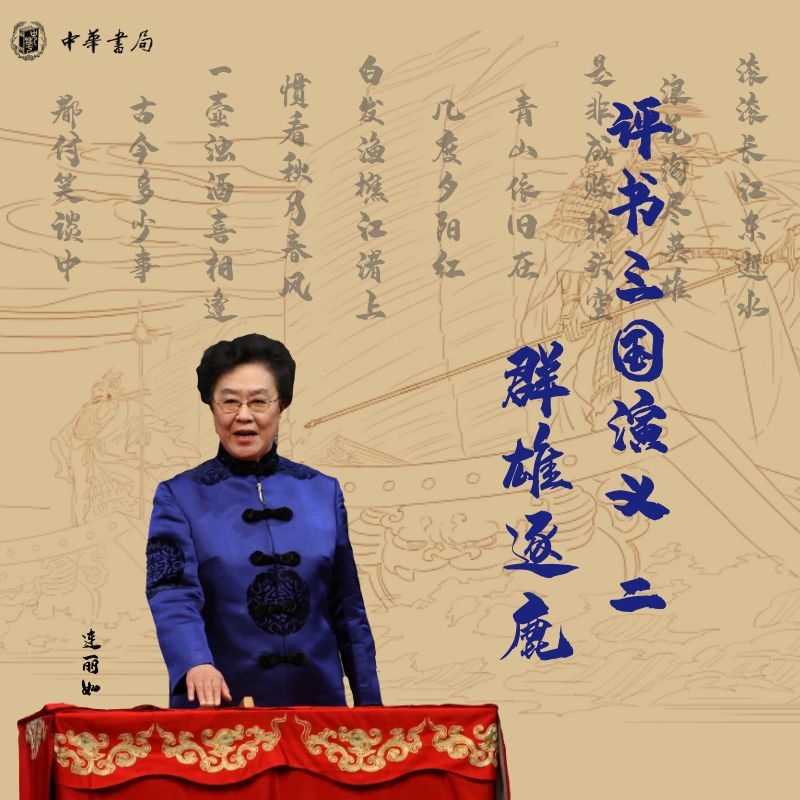 中華書局
滚滚长江东逝水
浪花淘尽英雄
是非成败转头空
青山依旧在
几度夕阳红
白发渔樵江渚上
惯看秋月春风
一壶浊酒喜相逢
古今多少事
都付笑谈中
评书三国演义 二
群雄逐鹿
连丽如